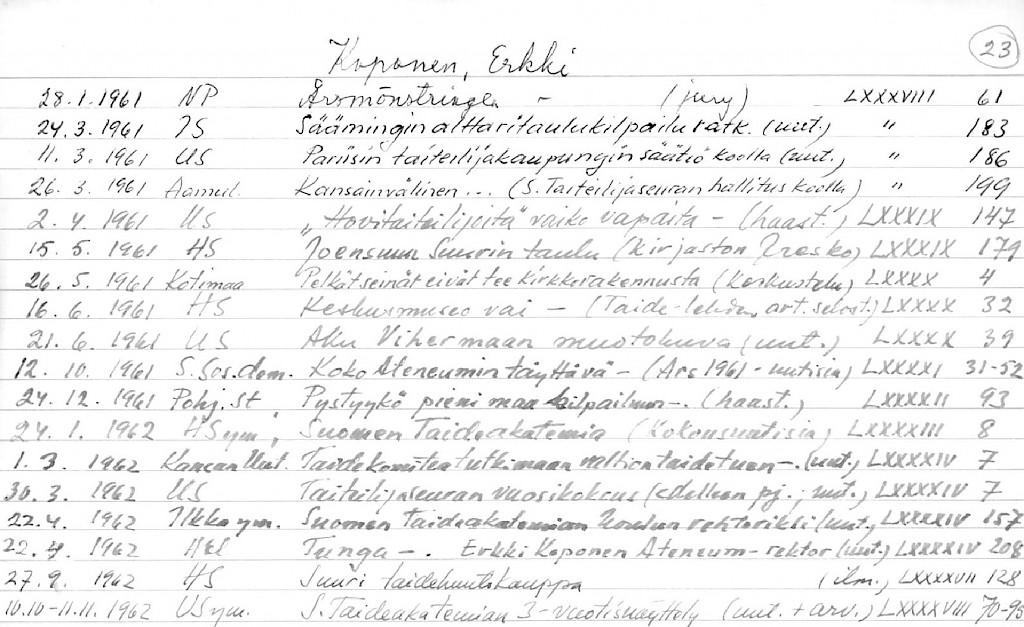 23
Koponen, Erkki
28.1.1961 NP Årsmönstringen - (jury) LXXXVIII 61
24.3.1961 IS Säämingin alttaritaulukilpailu ratk. (uut.) " 183
11.3.1961 US Pariisin taiteilijakaupungin säätiö koolla (uut.) " 186
26.3.1961 Aamul. Kansainvälinen... (S. Taiteilijaseuran hallitus koolla) " 199
2.4.1961 US "Hovitaiteilijoita" vaiko vapaita - (haast.) LXXXIX 147
15.5.1961 HS Joensuun suurin taulu (kirjaston fresko) LXXXIX 179
26.5.1961 Kotimaa Pelkät seinät eivät tee kirkkorakennusta (keskustelu) LXXXX 4
16.6.1961 HS Keskusmuseo vai - (Taide-lehden art. selost.) LXXXX 32
21.6.1961 US Aku Vihermaan muotokuva (uut.) LXXXX 39
12.10.1961 S.Sos.dem. Koko Ateneumin täyttävä - (Ars 1961 - uutisia) LXXXXI 31-52
24.12.1961 Pohj. st Pystyykö pieni maa kilpailuun -. (haast.) LXXXXII 93
24.1.1962 HS ym. Suomen Taideakatemia (Kokousuutisia) LXXXXIII 8
1.3.1962 Kansan Uut. Taidekomitea tutkimaan valtion taidetuen -. (uut.) LXXXXIV 7
30.3.1962 US Taiteilijaseuran vuosikokous (edelleen pj.; uut.) LXXXXIV 7
22.4.1962 Ilkka ym. Suomen Taideakatemian koulun rehtoriksi (uut.) LXXXXIV 157
22.4.1962 Hbl Tunga -. Erkki Koponen Ateneum-rektor (uut.) LXXXXIV 208
27.9.1962 HS Suuri taidehuutokauppa (ilm.) LXXXXVII 128
10.10-11.11.1962 US ym. S. Taideakatemian 3-vuotisnäyttely (uut. + arv.) LXXXXVIII 70-95